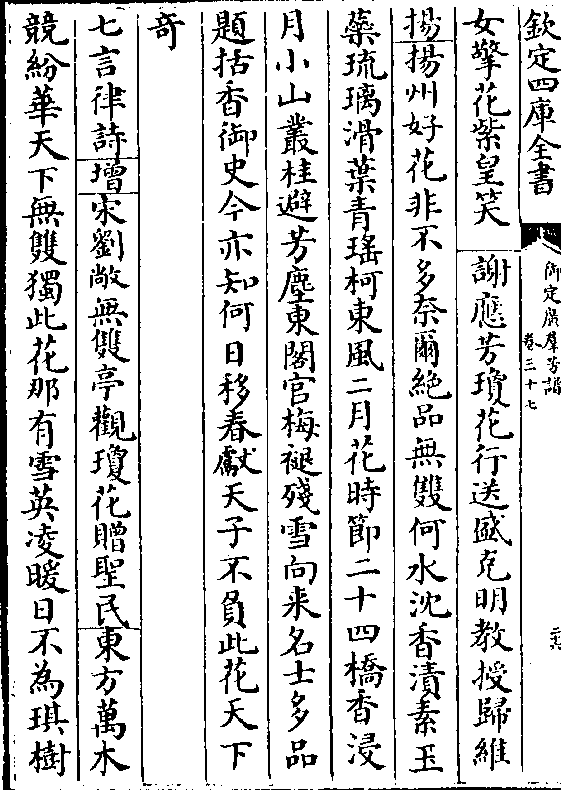 欽定四庫全書
御定廣羣芳譜
卷三十七
女擎花紫皇笑　謝應芳瓊花行送盛克明教授歸維
揚揚州好花非不多奈爾絶品無雙何水沈香漬素玉
蘂琉璃滑葉青瑤柯東風二月花時節二十四橋香浸
月小山叢桂避芳塵東閣官梅褪殘雪向来名士多品
題括香御史今亦知何日移春獻天子不負此花天下
竒
七言律詩增宋劉敞無雙亭觀瓊花贈聖民東方萬木
競紛華天下無雙獨此花那有雪英凌暖日不為琪樹